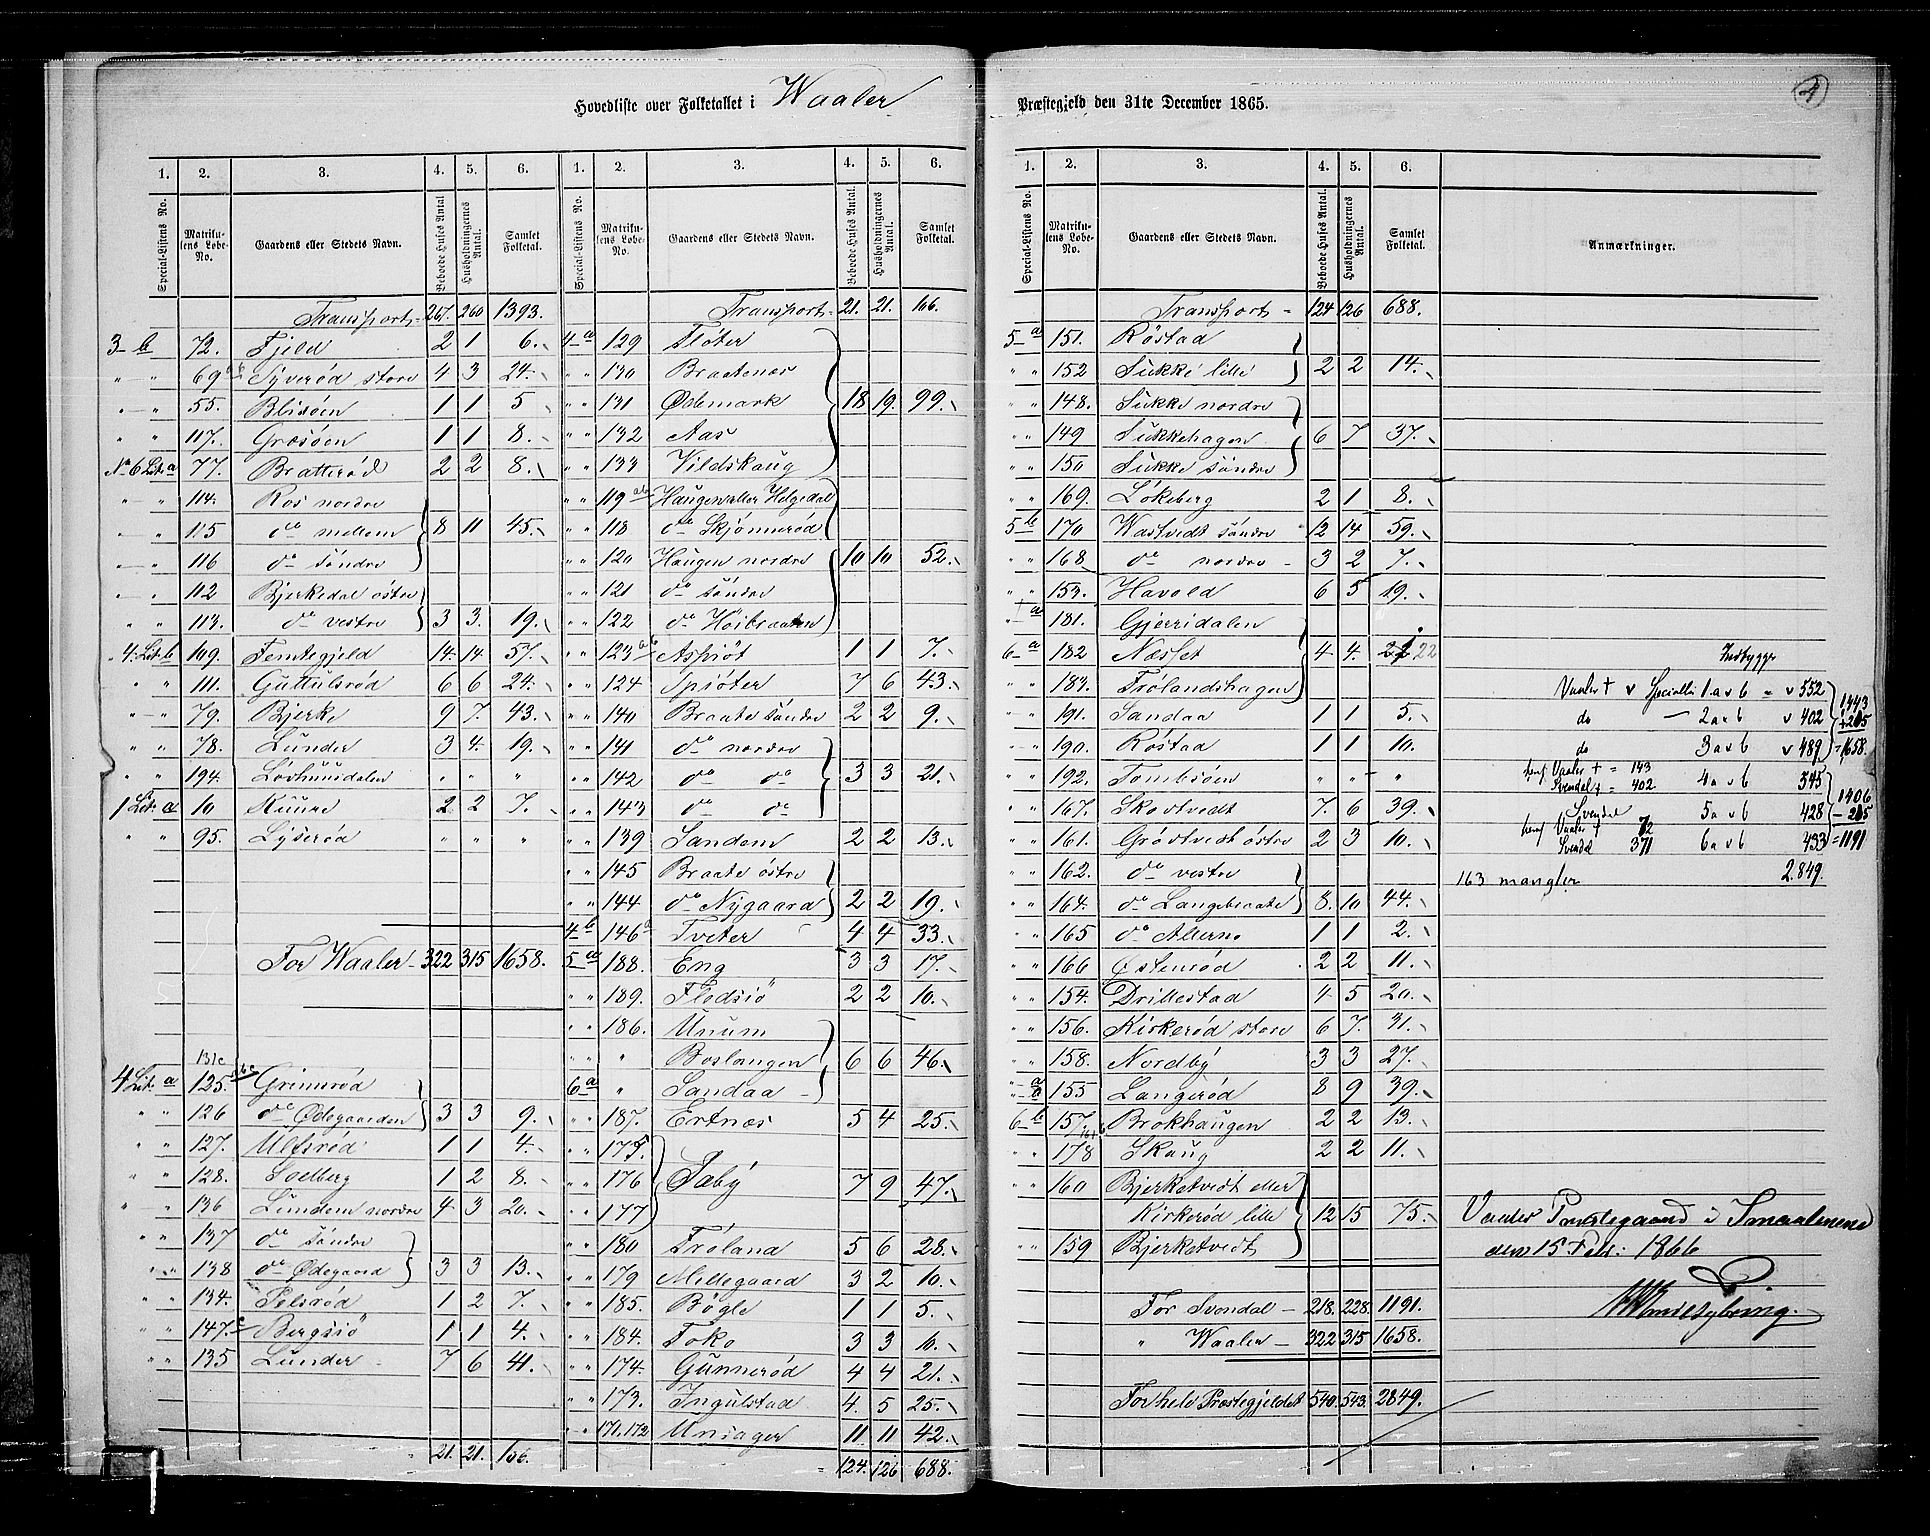 4
Hovedliste over Folketallet i Waaler
Præstegjeld den 31te December 1865.
1. 2. 3. 4. 5. 6.
Special-Listens No. Matrikulens Løbe-No. Gaardens eller Stedets Navn. Beboede Huses Antal. Husholdningernes Antal. Samlet Folketal.
Transport 267. 260 1393.
3 b 72. Fjeld 2 1 6.
" " 69 ab Syverød store 4 3 24.
" " 55. Blisöen 1 1 5
" " 117. Græsöen 1 1 8.
No 6 Lit. a 77. Bratterød 2 2 8.
" " 114. Ros nordre
" " 115 do mellem 8 11 45.
" " 116 do söndre
" " 112 Bjerkedal östre
" " 113. do vestre 3 3. 19.
4 Lit. b 109. Femtegjeld 14. 14. 57.
" " 111. Guttulsrød 6 6 24.
" " 79. Bjerke 9 7. 43.
" " 78. Lunder 3 4. 19.
" " 194. Lovhuusdalen " " "
1 Lit. a 10 Kuure 2 2 7.
" " 95. Lyserød " " "
For Waaler 322 315 1658.
131c
4 Lit. a 125. abc Grimsrød
" " 126 do Ødegaarden 3 3 9.
" " 127. Ulfsrød 1 1 4.
" " 128. Soelberg 1 2 8.
" " 136 Lundem nordre 4 3 20.
" " 137 do söndre
" " 138 do Ødegaard 3 3 13.
" " 134. Pelsrød 1 2 7.
" " 147. c Bergsiö 1 1 4.
" " 135 Lunder 7 6 41.
21. 21. 106.
1. 2. 3. 4. 5. 6.
Special-Listens No. Matrikulens Løbe-No. Gaardens eller Stedets Navn. Beboede Huses Antal. Husholdningernes Antal. Samlet Folketal.
Transport 21. 21. 106.
4 a 129 Fløter
" " 130 Braatenæs
" " 131 Ødemark 18 19. 99.
" " 132 Aas
" " 133 Vildskaug
" " 119 ab Haugen eller Helgedal
" " 118 do Skjönnerød
" " 120 Haugen nordre 10 10 52.
" " 121 do söndre
" " 122 do Høibraaten
" " 123 ab Aspiöt 1 1 7.
" " 124 Spiöter 7 6 43.
" " 140 Braate söndre 2 2 9.
" " 141 do nordre
" " 142 do do 3 3 21.
" " 143 do do
" " 139 Sandem 2 2 13.
" " 145 Braate östre
" " 144 do Nygaard 2 2 19.
4 b 146 a Tveter 4 4 33.
5 a 188. Eng 3 3 17.
" " 189. Flodsiö 2 2 10.
" " 186. Unum
" " " Boslangen 6 6 46.
6 a " Sandaa
" " 187. Ertnæs 5 4 25.
" " 175
" " 176 Sæby 7 9 47.
" " 177
" " 180 Fröland 5 6 28.
" " 179 Mellegaard 3 2 10.
" " 185. Bögle 1 1 5.
" " 184. Foko 3 3 10.
" " 174. Gunnerød 4 4 21.
" " 173. Ingulstad 4. 5 25.
" " 171. 172 Unsager 11 11 42.
124. 126 688.
1. 2. 3. 4. 5. 6.
Special-Listens No. Matrikulens Løbe-No. Gaardens eller Stedets Navn. Beboede Huses Antal. Husholdningernes Antal. Samlet Folketal. Anmærkninger.
Transport 124 126 688.
5 a 151. Röstad
" " 152 Sukke lille 2 2 14.
" " 148. Sukke nordre
" " 149 Sukkehagen 6 7 37.
" " 150 Sukke söndre
" " 169. Lökeberg 2 1 8.
5 b 170 Wastvedt söndre 12 14 59.
" " 168 do nordre 3 2 7.
" " 153. Havold 6 5 19.
" a 181. Gjerridalen
6 a 182 Næsset 4 4. 22
" " 183. Frölandshagen
" " 191. Sandaa 1 1 5.
" " 190. Röstad 1 1 10.
" " 192. Tombsöen " " "
" " 167. Skovtvedt 7. 6 39.
" " 161. Gröstvedt östre 2 3 10.
" " 162. do vestre
" " 164. do Langebraate 8. 10 44.
" " 165 do Allerne 1 1 2.
" " 166 Østenrød 2 2 11.
" " 154. Drillestad 4 5 20.
" " 156. Kirkerød store 6 7. 31.
" " 158. Nordby 3 3 27.
" a 155 Langerød 8 9 39.
6 b 157. Brokhaugen 2 2 13.
" " 178 Skaug 2 2 11.
" " 160 Bjerketvedt eller
Kirkerød lille 12 15 75.
" " 159 Bjerketvedt
For Svendal 218. 228. 1191.
" Waaler 322 315 1658.
For hele Præstegjeldet 540. 543. 2849.
Indbygger
Vaaler + v Specialli 1 a v b = v 552
do — 2 a v b v 402
do 3 a v b v 489
1443
+ 215
= 1658.
heraf Vaaler + = 143 4 a v b 545
Svendal + = 402
Svendal 5 a v b 428
heraf Vaaler + 72
Svendal 371 6 a v b 433
1406
- 215
= 1191
2.849.
163 mangler
Vaaler Præstegaard i Smaalenene
den 15 Febr: 1866